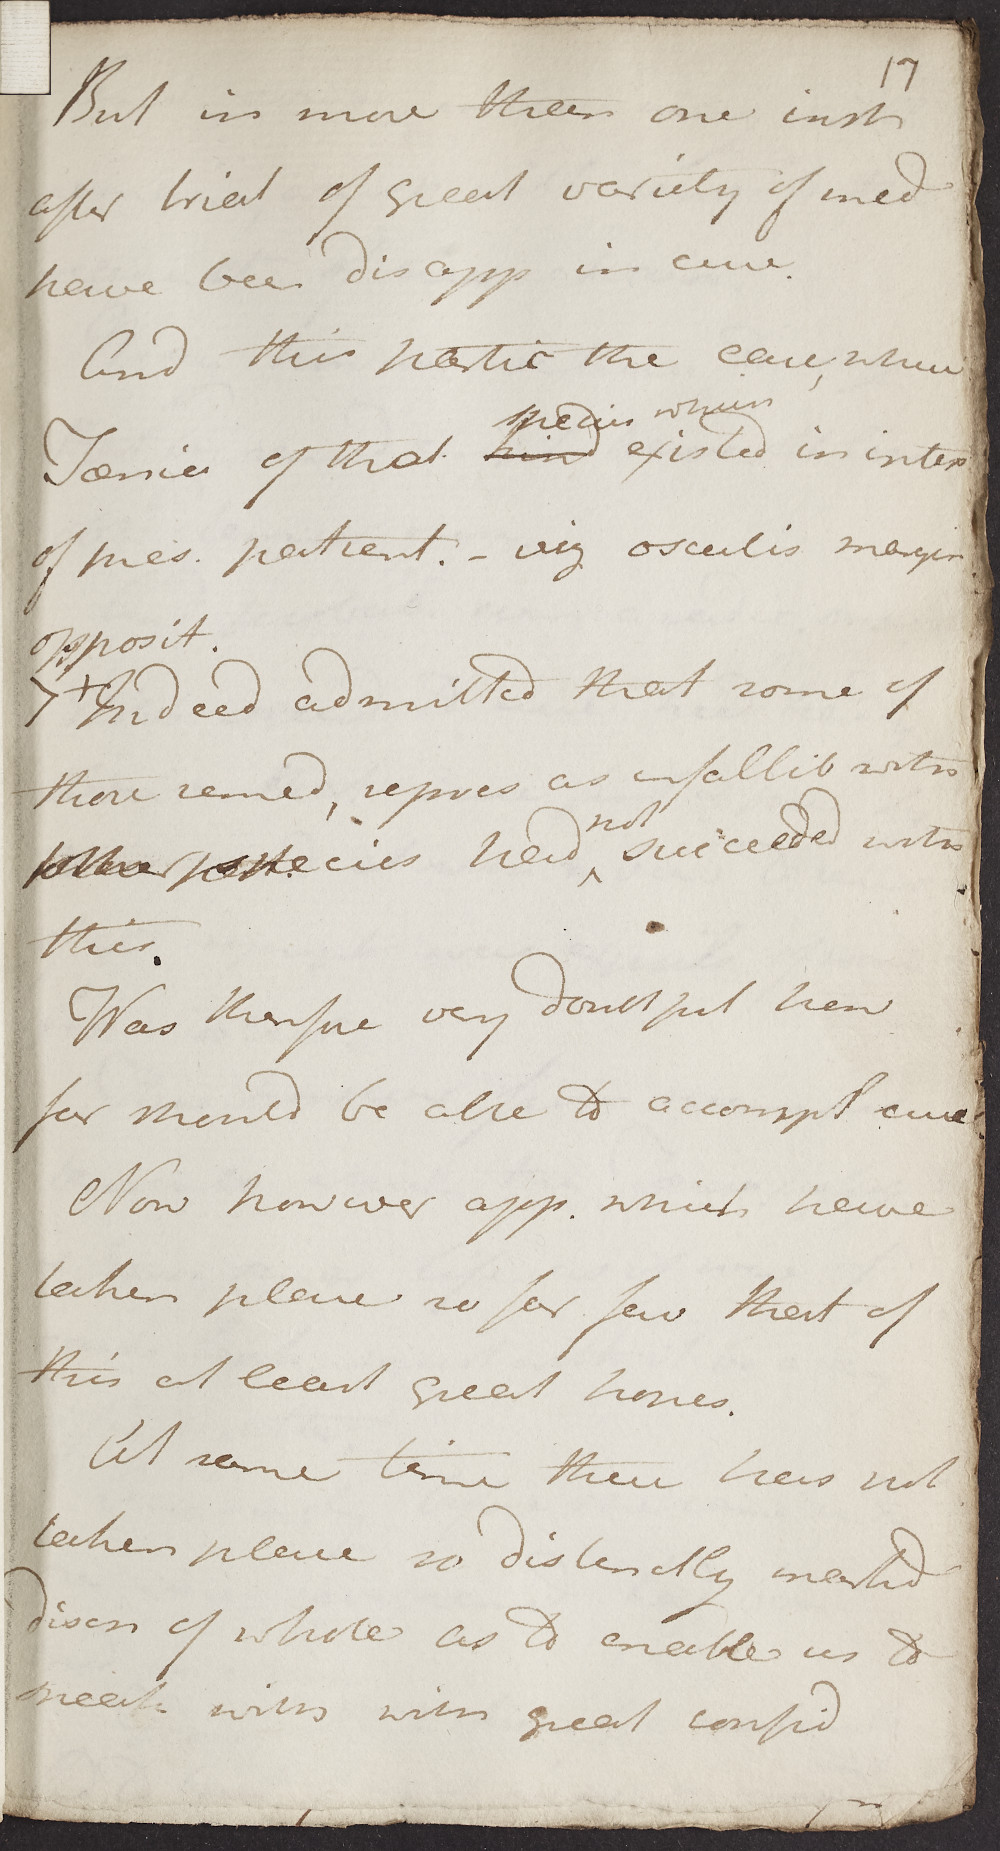 17
But in more than one inst
after trial of great variety of med
have been disapp in cure.
And this partic the case, when
Tænia of that kind species which existed in intes
of pres. patient. - viz osculis margin
opposit.
7+ Indeed admitted that some of
those remed, repres as infallib with
other species had not succeeded with
this.
Was therfore very doubtful how
far should be able to accompl cure
Now however app. which have
taken place so far fav that of
this at least great hopes.
At same time there has not
taken place so distinctly marked
discn of whole as to enable us to
speak with with great confid